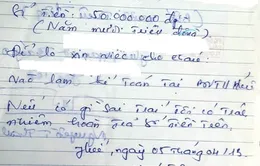 Số tiền: 50.000.000đ
(Năm mươi triệu đồng)
Để lo xin việc cho cháu
làm kế toán tại
Nếu có gì sai trái tôi có trách
nhiệm hoàn trả số tiền trên.
Huế, ngày 05 tháng 01.13